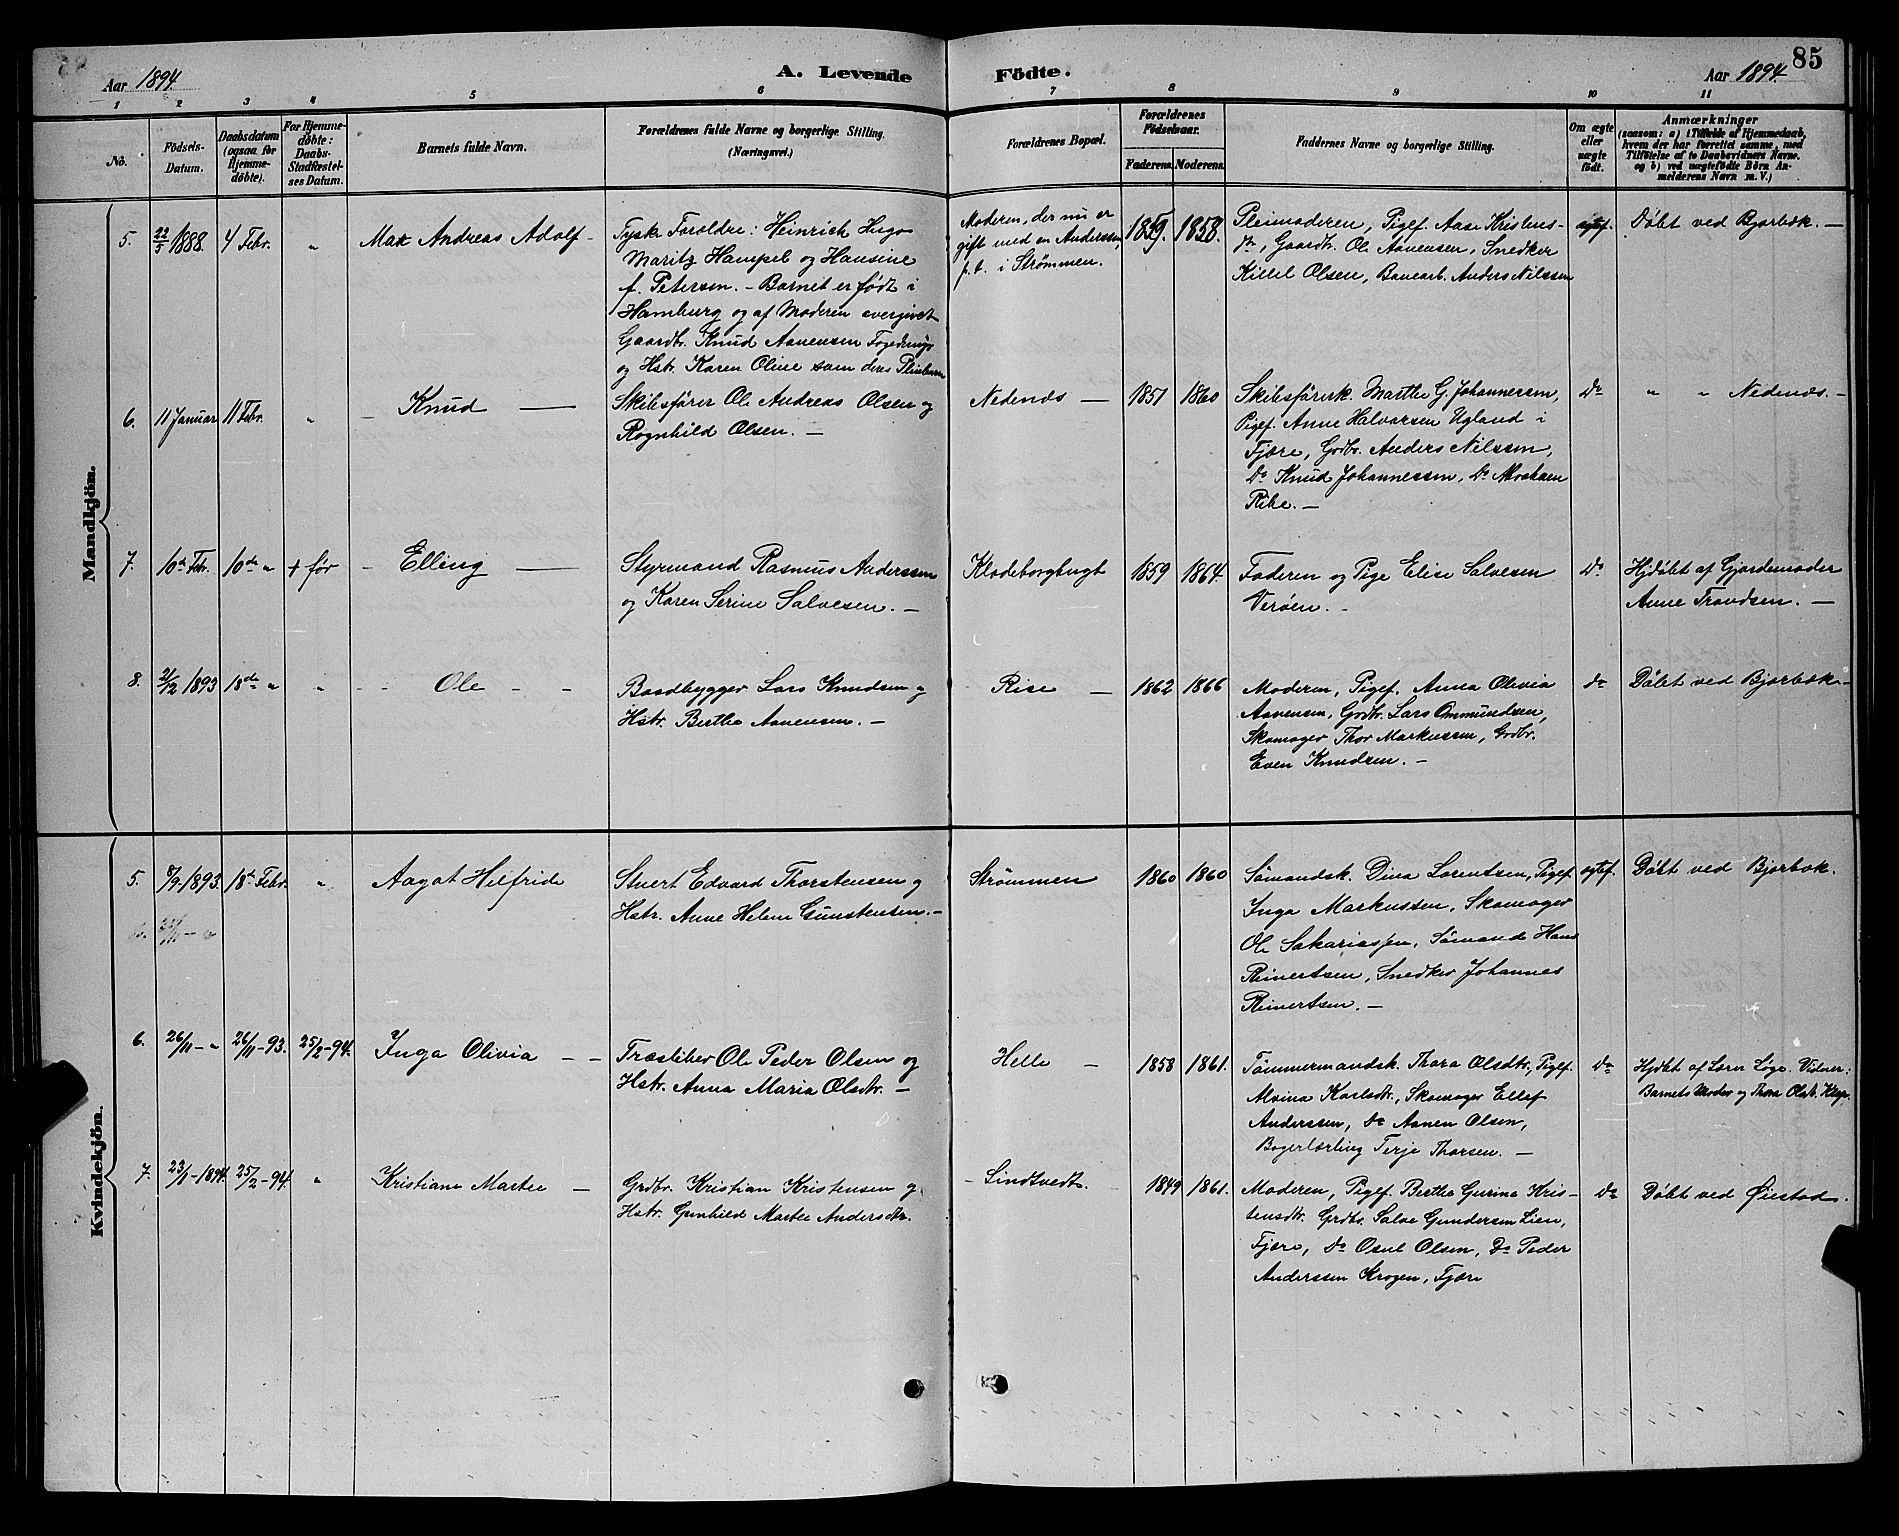 85
Aar 1894.
A. Levende Födte.
Aar 1894.
1 2 3 4 5 6 7 8 9 10 11
No.
Födsels-
Datum.
Daabsdatum
(ogsaa for
Hjemme-
döbte).
For Hjemme-
döbte:
Daabs-
Stadfæstel-
ses Datum.
Barnets fulde Navn.
Forældrenes fulde Navne og borgerlige Stilling.
(Næringsvei.)
Forældrenes Bopæl.
Forældrenes
Födselsaar.
Faderens. Moderens.
Faddernes Navne og borgerlige Stilling.
Om ægte
eller
uægte
födt.
Anmærkninger
(saasom: a) i Tilfælde af Hjemmedaab,
hvem der har forrettet samme, med
Tilföielse af to Daabsvidners Navne,
og b) ved uægtefödte Börn An-
melderens Navn m. V.)
Mandkjön.
5. 22/5 1888. 4 Febr. "
Max Andreas Adolf -
Tyske Foroldre: Heinrich Hugo
Maritz Hampel og Hansine
f. Petersen. - Barnet er født i
Hamburg og af Moderen overgivet
Gaardbr. Knud Aanensen
og Hstr. Karen Oline som deres Pleiebarn
Moderen, der nu er
gift med en Anderssen,
p. t. i Strømmen.
1859. 1858.
Pleimoderen, Pigef. Aase Kristens-
dtr, Gaardbr. Ole Aanensen, Snedker
Killel Olsen, Banearb. Anders Nilssen
ægtef.
Døbt ved Bjorbæk. -
6. 11 Januar 11 Febr. "
- Knud -
Skibsfører Ole Andreas Olsen og
Rognhild Olsen. -
Nedenæs -
1851 1860
Skibsførerk. Marthe G. Johannesen,
Pigef. Anne Halvorsen Ugland i
Fjære, Grdbr. Anders Nilssen,
Do Knud Johannessen, Do Abraham
Ribe. -
Do
" " Nedenæs. -
7. 10de Febr. 10de " + før
- Elling -
Styrmand Rasmus Anderssen
og Karen Serine Salvesen. -
Klodeborgbugt
1859 1864
Faderen og Pige Elise Salvesen
Verøen. -
Do
Hjdøbt af Gjordemoder
Anne Trondsen. -
8. 2/12 1893 18de " "
- Ole - -
Baadbygger Lars Knudsen og
Hstr. Berthe Aanensen. -
Rise -
1862 1866
Moderen, Pigef. Anna Olivia
Aanensen, Grdbr. Lars Ommundsen,
Skomager Thor Markussen, Grdbr.
Even Knudsen. -
do
Døbt ved Bjorbæk -
Kvindekjön.
5. 8/9 1893. 18de Febr. "
Aagot Hilfride
Stuert Edvard Thorstensen og
Hstr. Anne Helene Gunstensen. -
Strømmen
1860 1860
Sømandsk. Dina Lorentsen, Pigef.
Inga Markussen, Skomager
Ole Sakariassen, Sømand Hans
Reinertsen, Snedker Johannes
Reinertsen. -
ægtef.
Døbt ved Bjorbæk.
6. 26/11 - " 26/11 - 93. 25/2 - 94.
Inga Olivia - -
Træsliber Ole Peder Olsen og
Hstr. Anna Maria Olsdtr. -
Helle -
1858 1861.
Tømmermandsk. Thora Olsdtr., Pigef.
Alvina Karlsdtr., Skomager Ellef
Anderssen, Do Aanen Olsen,
Bagerlærling Terje Thorsen. -
Do
Hjdøbt af Løge. Vidner:
Barnets Moder og Thora Olsdtr.
7. 23/1 - 1894. 25/2 - 94. "
Kristiane Martee -
Grdbr. Kristian Kristensen og
Hstr. Gunhild Martee Andersdtr.
- Lindtvedt. -
1849 1861.
Moderen, Pigef. Berthe Gurina Kris-
tensdtr. Grdbr. Salve Gundersen Lien,
Fjære, Do Osul Olsen, Do Peder
Anderssen Krogen, Fjære
Do
Døbt ved Øiestad.